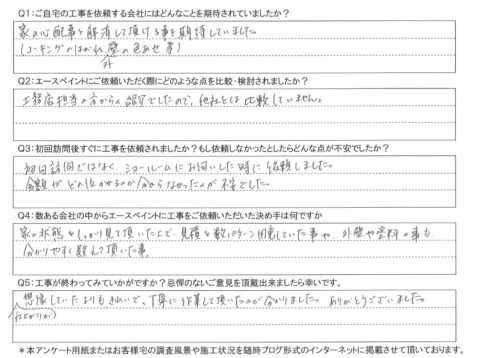 Q1:ご自宅の工事を依頼する会社にはどんなことを期待されていましたか?
家の心配事を解消して頂ける事を期待していました。
(コーキングのはがれ、外壁の色あせ等)
Q2:エースペイントにご依頼いただく際にどのような点を比較・検討されましたか?
工務店担当の方からの紹介でしたので、他社とは比較していません。
Q3:初回訪問後すぐに工事を依頼されましたか?もし依頼しなかったとしたらどんな点が不安でしたか?
初回訪問ではなく、ショールームにお伺いした時に依頼しました。
金額がどの位かかるのか分からなかったのが不安でした。
Q4:数ある会社の中からエースペイントに工事をご依頼いただいた決め手は何ですか
家の状態をしっかり見て頂いた上で、見積を数パターン用意していた事や、外壁や塗料の事も
分かりやすく教えて頂いた事。
Q5:工事が終わってみていかがですか?忌憚のないご意見を頂戴出来ましたら幸いです。
想像していたよりもきれいで、丁寧に作業して頂いたのが分かりました。ありがとうございました。
(仕上がりが)
*本アンケート用紙またはお客様宅の調査風景や施工状況を随時ブログ形式のインターネットに掲載させて頂いております。